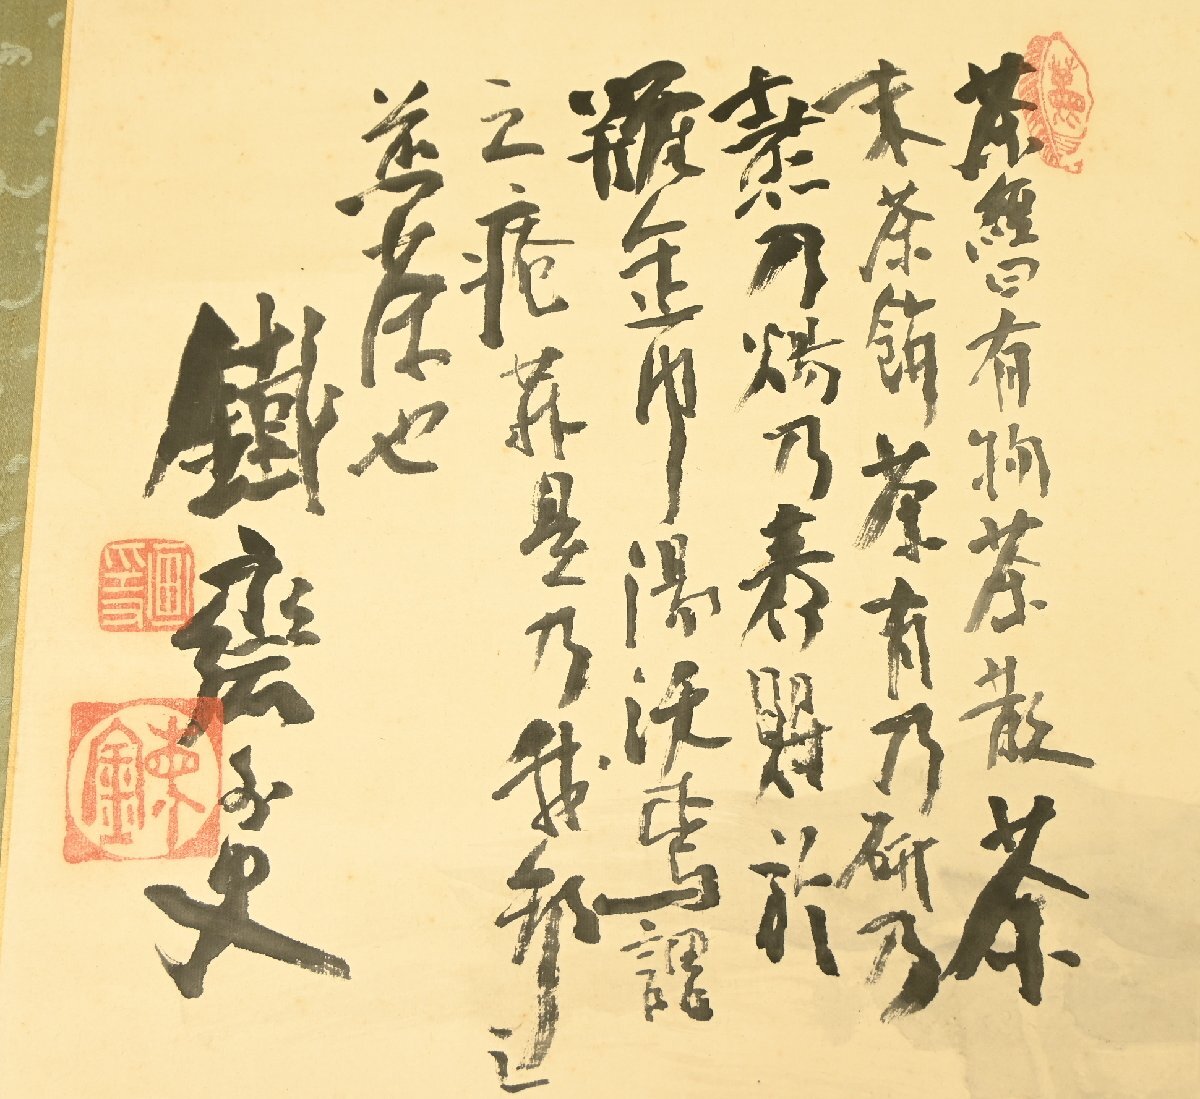 茶經曰有觕茶散茶
末茶餅茶者乃斫乃
熬乃煬乃舂貯於
缶中湯沃焉謂
之痷茶是乃我邦之
茶也
鐵齋外史